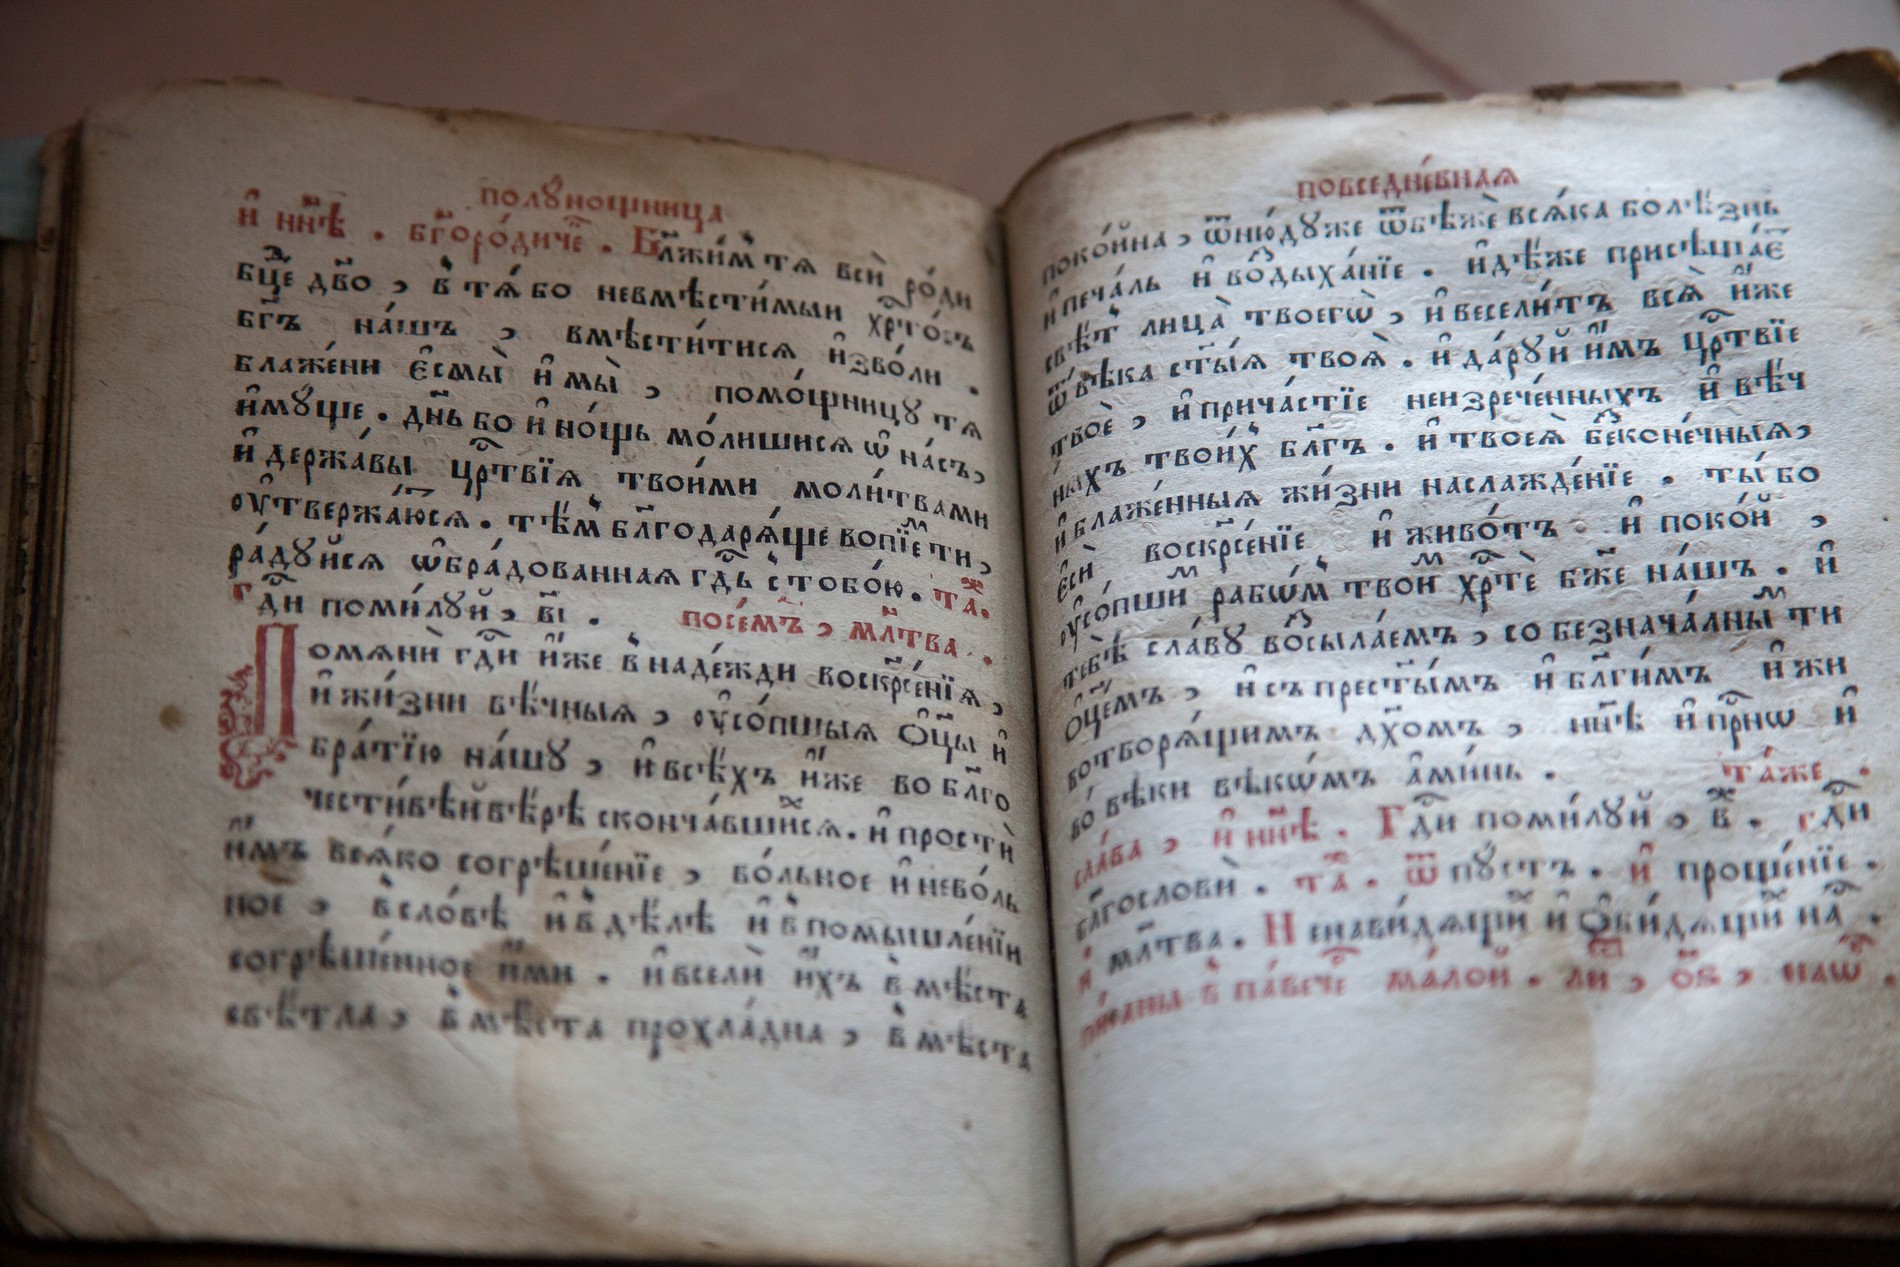 полꙋнощница
и҆ нн҃ѣ . бг҃оро́диче . Бл҃жи́мъ тѧ всѝ ро́ди
бц҃е дв҃о , в тѧ́ бо невмѣсти́мыи хрⷭ҇то́съ
бг҃ъ на́шъ , вмѣсти́тисѧ и҆зво́ли .
блаже́ни є҆смы̀ и҆ мы̀ , помо́щницꙋ тѧ
и҆мꙋ́ще . дн҃ь бо и҆ но́щь мо́лишисѧ ѡ҆ на́съ ,
и҆ держа́вы црⷭ҇твїѧ твои́ми моли́твами
ᲂу҆твержа́юсѧ . тѣ́м бл҃годарѧ́ще вопїе́м ти ,
ра́дꙋйсѧ ѡ҆бра́дованнаѧ гдⷭ҇ь с тобо́ю . та́ж .
гдⷭ҇и поми́лꙋй , в҃і . посе́мъ , мл҃тва .
Помѧнѝ гдⷭ҇и и҆́же в наде́жди воскрⷭ҇е́нїѧ ,
и҆ жи́зни вѣ́чныѧ , ᲂу҆со́пшыѧ ѻ҆ц҃ы и҆
бра́тїю на́шꙋ , и҆ всѣ́хъ и҆́же во бл҃го
че́сти и҆ вѣ́рѣ сконча́вшихсѧ . и҆ простѝ
и҆̀мъ всѧ́ко согрѣше́нїе , во́льное и҆ нево́ль
ное , в сло́вѣ и҆ в дѣ́лѣ и҆ в помышле́нїи
согрѣше́нное и҆́ми . и҆ вселѝ и҆́хъ в мѣ́ста
свѣ́тла , в мѣ́ста прохла́дна , в мѣ́ста
повседне́внаѧ
поко́йна , ѿню́дꙋже ѿбѣжѐ всѧ́ка болѣ́знь
и҆ печа́ль и҆ воз̾дыха́нїе . и҆дѣ́же присѣща́є
свѣ́т лица̀ твоегѡ̀ , и҆ весели́тъ всѧ̀ и҆̀же
ѿ вѣ́ка ст҃ы́ѧ твоѧ̀ . и҆ да́рꙋй и҆̀мъ црⷭ҇твїе
твоѐ , и҆ прича́стїе неизрече́нныхъ и҆ вѣ́ч
ныхъ твои́х бл҃гъ . и҆ твоеѧ̀ безконе́чныѧ ,
и҆ блаже́нныѧ жи́зни наслажде́нїе . ты́ бо
є҆сѝ воскрⷭ҇е́нїе и҆ живо́тъ . и҆ поко́й ,
ᲂу҆со́пшим рабѡ́м твоим хрⷭ҇тѐ бж҃е на́шъ . и҆
тебѣ̀ сла́вꙋ воз̾сыла́емъ , со безнача́лным ти
ѻ҆ц҃е́мъ , и҆ съ прест҃ы́мъ и҆ бл҃ги́мъ и҆ жи
вотворѧ́щимъ дх҃омъ , нн҃ѣ и҆ прⷭ҇нѡ и҆
во́ вѣки вѣкѡ́мъ а҆ми́нь . та́же .
сла́ва , и҆ нн҃ѣ . Гдⷭ҇и поми́лꙋй , в҃ж . гдⷭ҇и
бл҃гословѝ . та́ж . ѿпꙋ́стъ . и҆ проще́нїе .
и҆ мл҃тва . Ненави́дѧщих и҆ ѻ҆би́дѧщих на́с .
пи́саны в па́вечерⷭ҇ ма́лой .